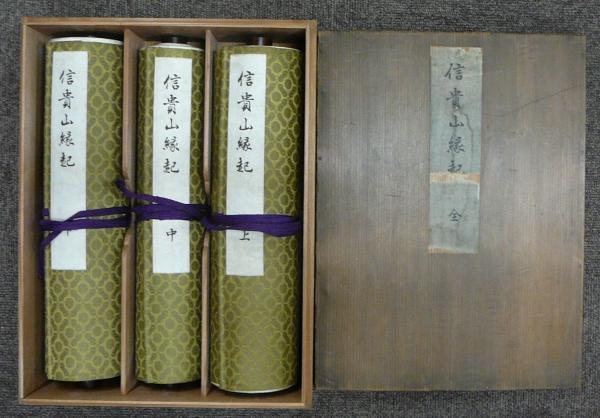 信貴山縁起 上
信貴山縁起 中
信貴山縁起
信貴山縁起 全